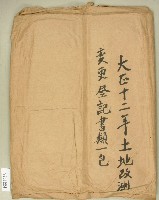 大正十二年土地改測
変更登記書類一包